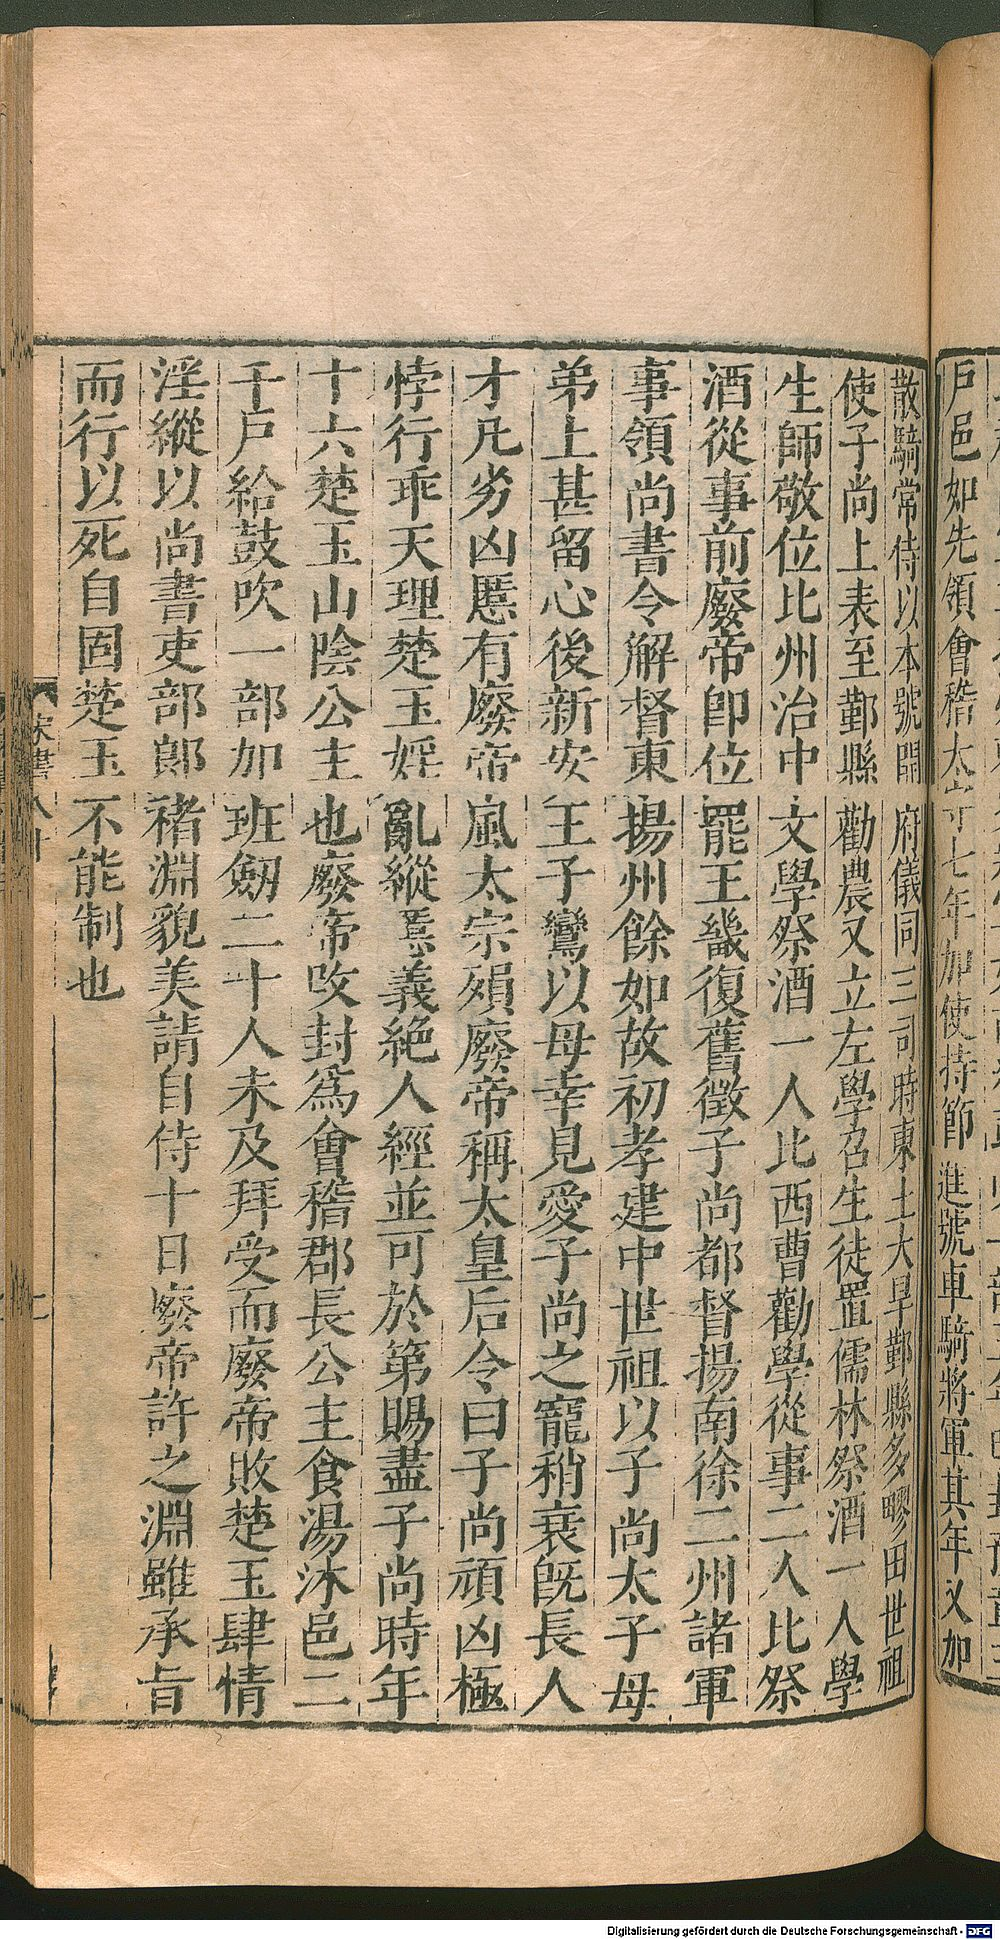 戸邑如先領會稽太守七年加使持節進號車騎將軍其年又加
散騎常侍以本號開府儀同三司時東土大旱鄞縣多疁田世祖
使子尚上表至鄞縣勸農又立左學召生徒置儒林祭酒一人學
生師敬位比州治中文學祭酒一人比西曹勸學從事二人比祭
酒從事前廢帝卽位罷王畿復舊徵子尚都督揚南徐二州諸軍
事領尚書令解督東揚州餘如故初孝建中世祖以子尚太子母
弟上甚留心後新安王子鸞以母幸見愛子尚之寵稍衰旣長人
才凡劣凶慝有廢帝風太宗殞廢帝稱太皇后令曰子尚頑凶極
悖行乖天理楚玉婬亂縱慝義絶人經並可於第賜盡子尚時年
十六楚玉山陰公主也廢帝攺封爲會稽郡長公主食湯沐邑二
千戸給鼓吹一部加班劒二十人未及拜受而廢帝敗楚玉肆情
淫縱以尚書吏部郎褚淵貌美請自侍十日廢帝許之淵雖承旨
而行以死自固楚玉不能制也
宋書八十
七
Digitalisierung gefördert durch die Deutsche Forschungsgemeinschaft - DFG